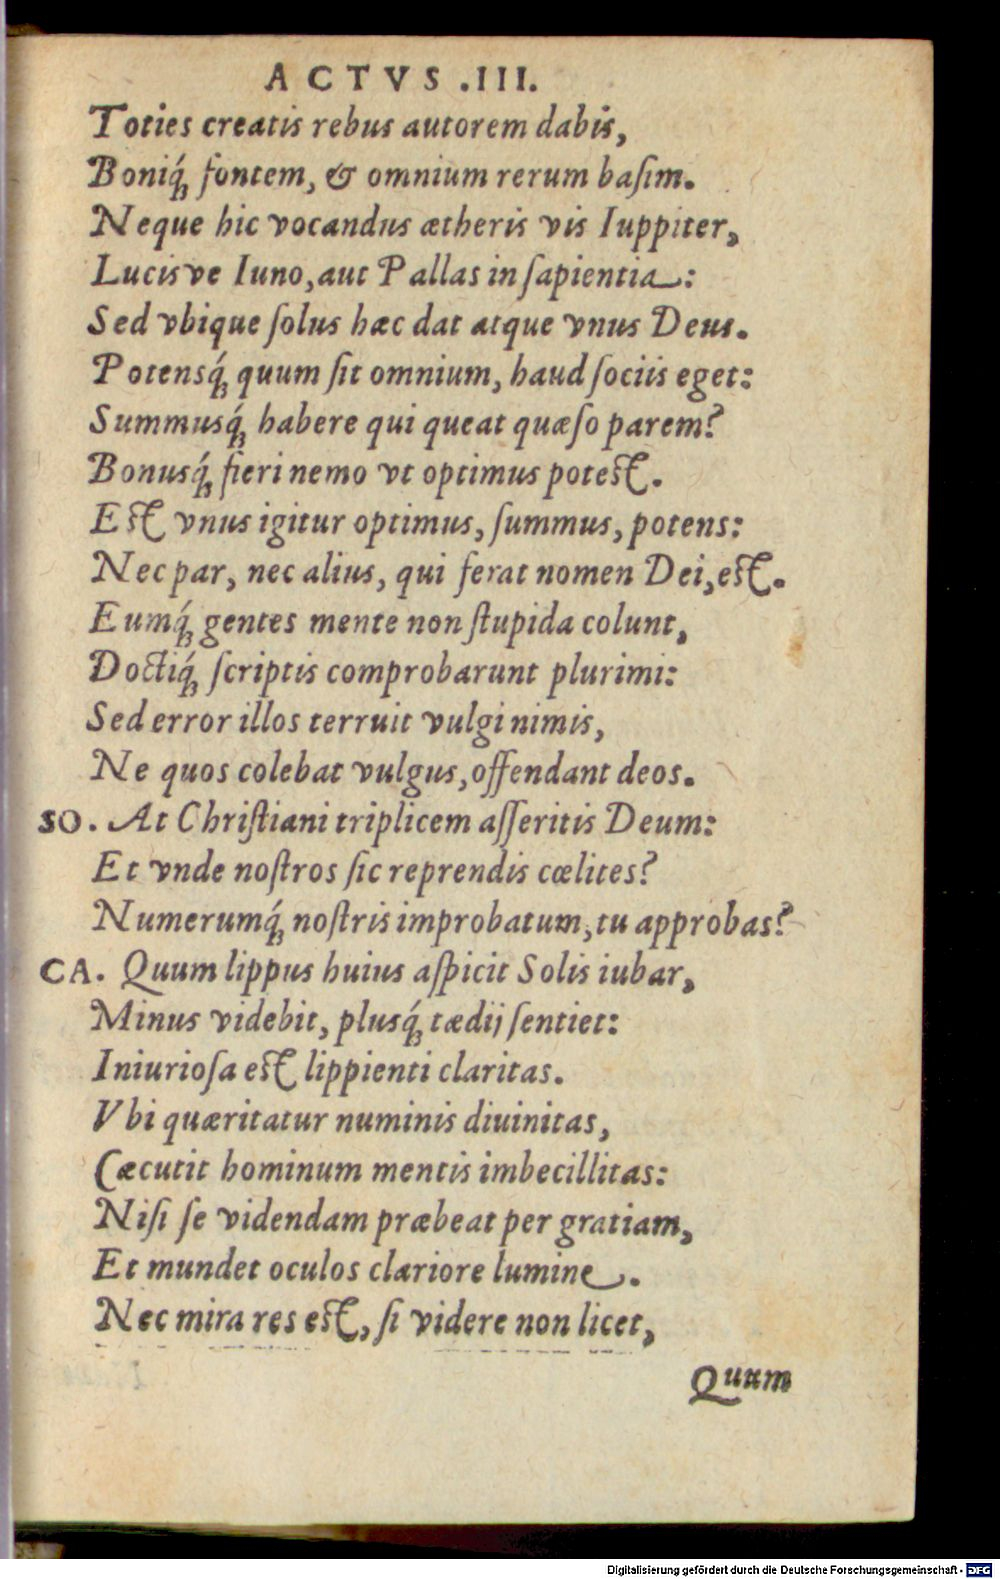 ACTVS .III.
Toties creatis rebus autorem dabis,
Boniq́; fontem, & omnium rerum baſim.
Neque hic vocandus ætheris vis Iuppiter,
Lucisve Iuno, aut Pallas in ſapientia:
Sed vbique ſolus hæc dat atque vnus Deus.
Potensq́; quum ſit omnium, haud ſociis eget:
Summusq́; habere qui queat quæſo parem?
Bonusq́; fieri nemo vt optimus poteſt.
Eſt vnus igitur optimus, ſummus, potens:
Nec par, nec alius, qui ferat nomen Dei, eſt.
Eumq́; gentes mente non ſtupida colunt,
Doctiq́; ſcriptis comprobarunt plurimi:
Sed error illos terruit vulgi nimis,
Ne quos colebat vulgus, offendant deos.
SO. At Chriſtiani triplicem aſſeritis Deum:
Et vnde noſtros ſic reprendis cœlites?
Numerumq́; noſtris improbatum, tu approbas?
CA. Quum lippus huius aſpicit Solis iubar,
Minus videbit, plusq́; tædij ſentiet:
Iniurioſa eſt lippienti claritas.
Vbi quæritatur numinis diuinitas,
Cæcutit hominum mentis imbecillitas:
Niſi ſe videndam præbeat per gratiam,
Et mundet oculos clariore lumine.
Nec mira res eſt, ſi videre non licet,
Quum
Digitalisierung gefördert durch die Deutsche Forschungsgemeinschaft - DFG